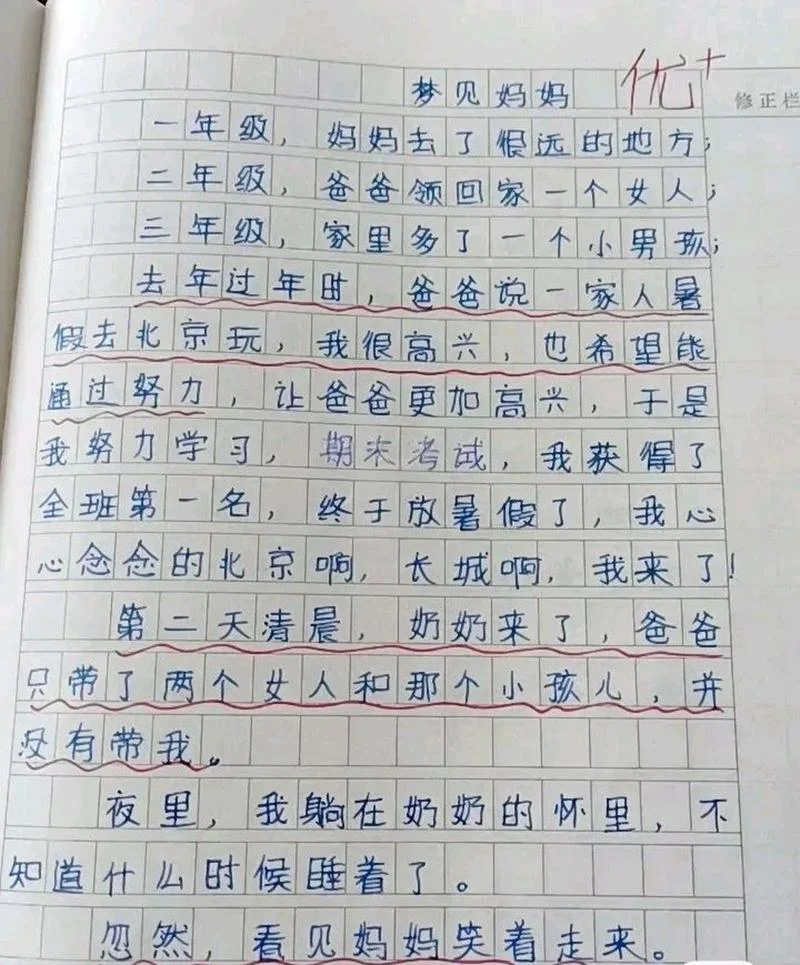 梦见妈妈
优+
修正栏
一年级，妈妈去了很远的地方；
二年级，爸爸领回家一个女人；
三年级，家里多了一个小男孩；
去年过年时，爸爸说一家人暑
假去北京玩，我很高兴，也希望能
通过努力，让爸爸更加高兴，于是
我努力学习，期末考试，我获得了
全班第一名，终于放暑假了，我心
心念念的北京啊，长城啊，我来了！
第二天清晨，奶奶来了，爸爸
只带了两个女人和那个小孩儿，并
没有带我。
夜里，我躺在奶奶的怀里，不
知道什么时候睡着了。
忽然，看见妈妈笑着走来。